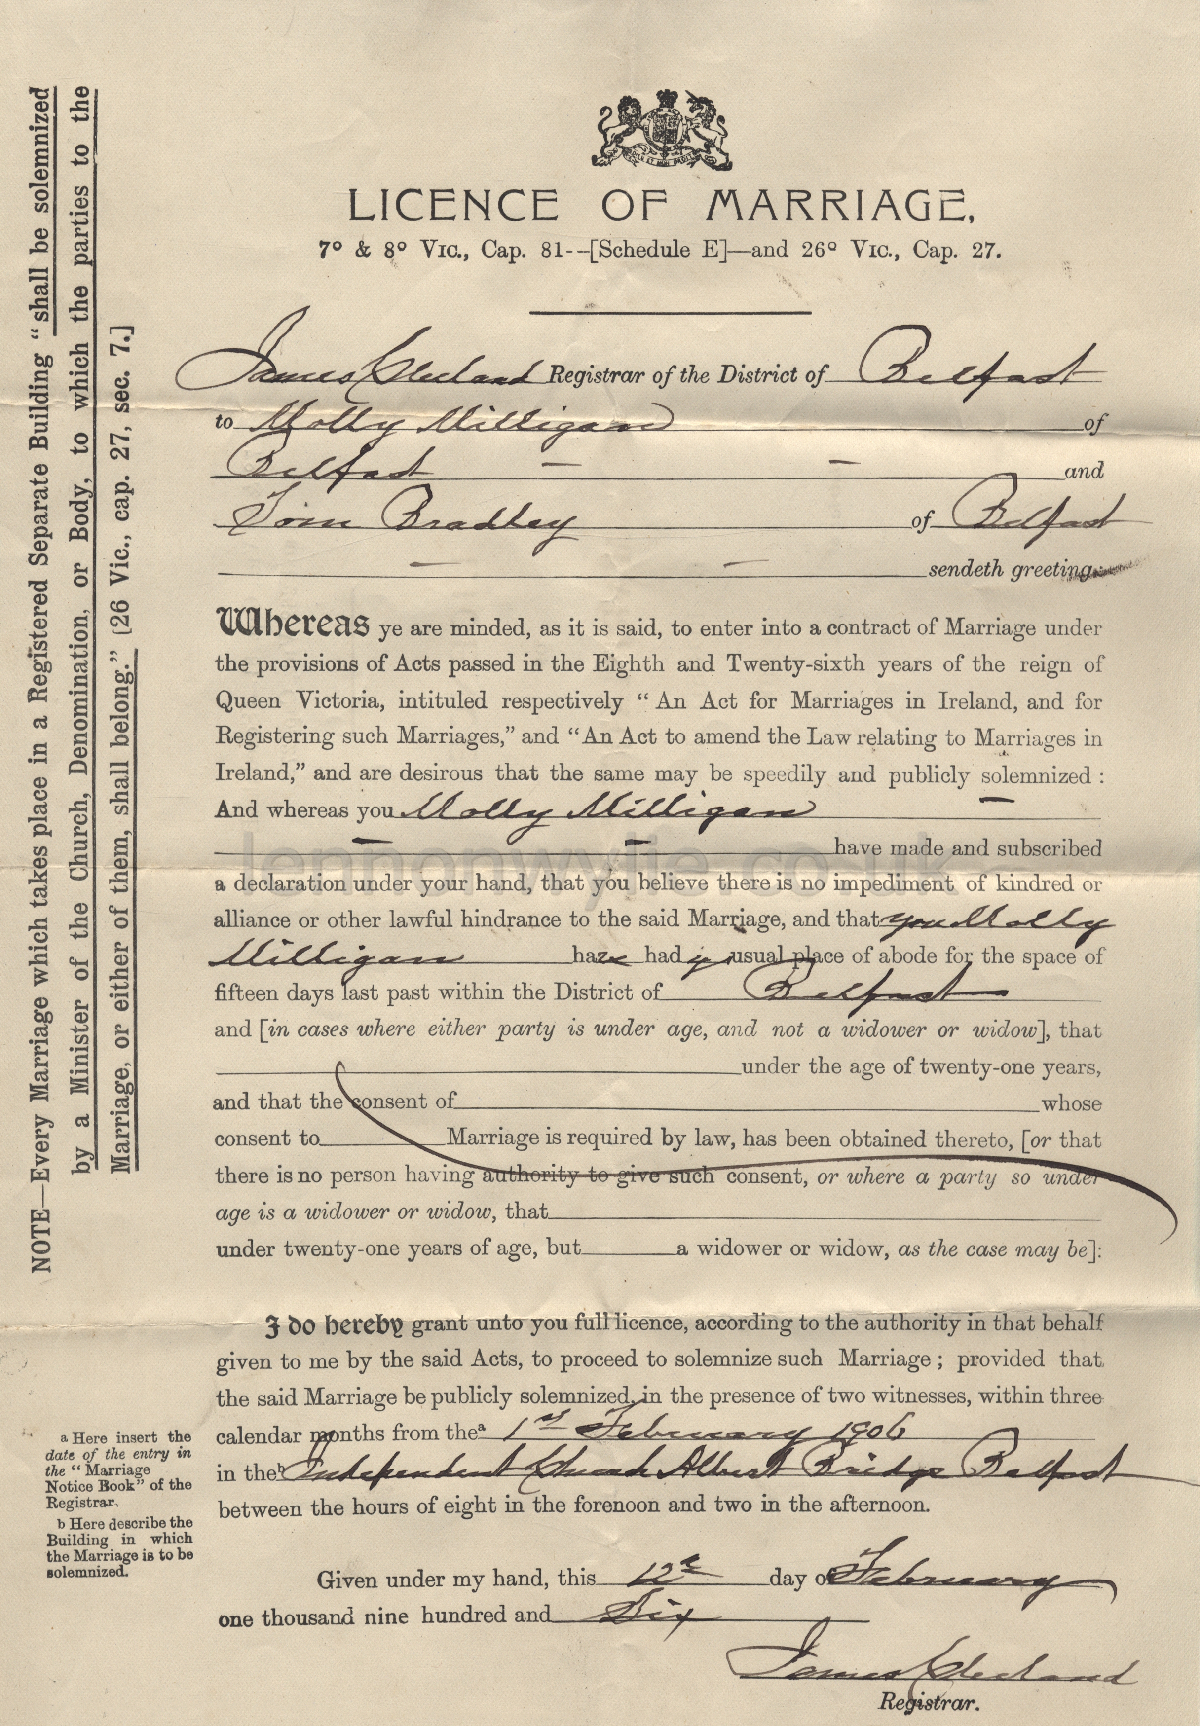 LICENCE OF MARRIAGE,
7º & 8º Vic., Cap. 81--[Schedule E]—and 26º Vic., Cap. 27.
James Cleeland Registrar of the District of Belfast
to Molly Milligan of
Belfast — — and
Tom Bradley of Belfast
— — sendeth greeting:
Whereas ye are minded, as it is said, to enter into a contract of Marriage under
the provisions of Acts passed in the Eighth and Twenty-sixth years of the reign of
Queen Victoria, intituled respectively “An Act for Marriages in Ireland, and for
Registering such Marriages,” and “An Act to amend the Law relating to Marriages in
Ireland,” and are desirous that the same may be speedily and publicly solemnized :
And whereas you Molly Milligan —
— — have made and subscribed
lennonwylie.co.uk
a declaration under your hand, that you believe there is no impediment of kindred or
alliance or other lawful hindrance to the said Marriage, and that you Molly
Milligan have had yr usual place of abode for the space of
fifteen days last past within the District of Belfast
and [in cases where either party is under age, and not a widower or widow], that
under the age of twenty-one years,
and that the consent of whose
consent to Marriage is required by law, has been obtained thereto, [or that
there is no person having authority to give such consent, or where a party so under
age is a widower or widow, that
under twenty-one years of age, but a widower or widow, as the case may be]:
I do hereby grant unto you full licence, according to the authority in that behalf
given to me by the said Acts, to proceed to solemnize such Marriage ; provided that
the said Marriage be publicly solemnized, in the presence of two witnesses, within three
calendar months from the a 1st February 1906
in the b Independent Church Albert Bridge Belfast
between the hours of eight in the forenoon and two in the afternoon.
Given under my hand, this 12th day of February
one thousand nine hundred and Six
James Cleeland
Registrar.
a Here insert the
date of the entry in
the “ Marriage
Notice Book” of the
Registrar.
b Here describe the
Building in which
the Marriage is to be
solemnized.
NOTE—Every Marriage which takes place in a Registered Separate Building “shall be solemnized
by a Minister of the Church, Denomination, or Body, to which the parties to the
Marriage, or either of them, shall belong.” [26 Vic., cap. 27, sec. 7.]